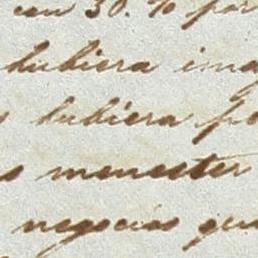 con 30. % por
hubiera ima
hubiera po
s menester
negocios que